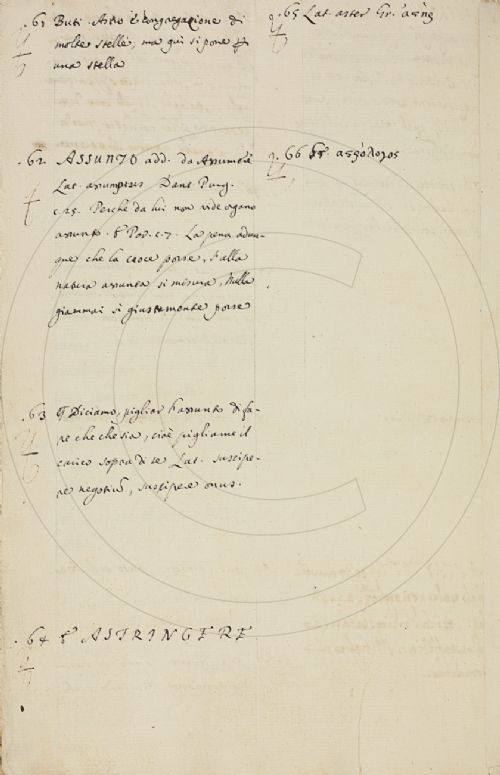 61 Buti. Astro è congregazione di
molte stelle, ma qui si pone
una stella
62 ASSUNTO add. da Assumere
Lat. assumptus Dant. Purg.
c. 25. Perche da lui non vide organo
assunto. Par. c. 7. La pena adun-
que che la croce porse, S'alla
natura assunta si misura, Nulla
giammai si giustamente porse
63 Diciamo, pigliar l'assunto di fa-
re che che sia, cioè pigliarne il
carico sopra di se Lat. suscipe-
re negotiũ, suscipere onus.
64 ASTRINGERE
65 Lat. aster Gr. ἀςὴς
66 Gr. αςςόλογος